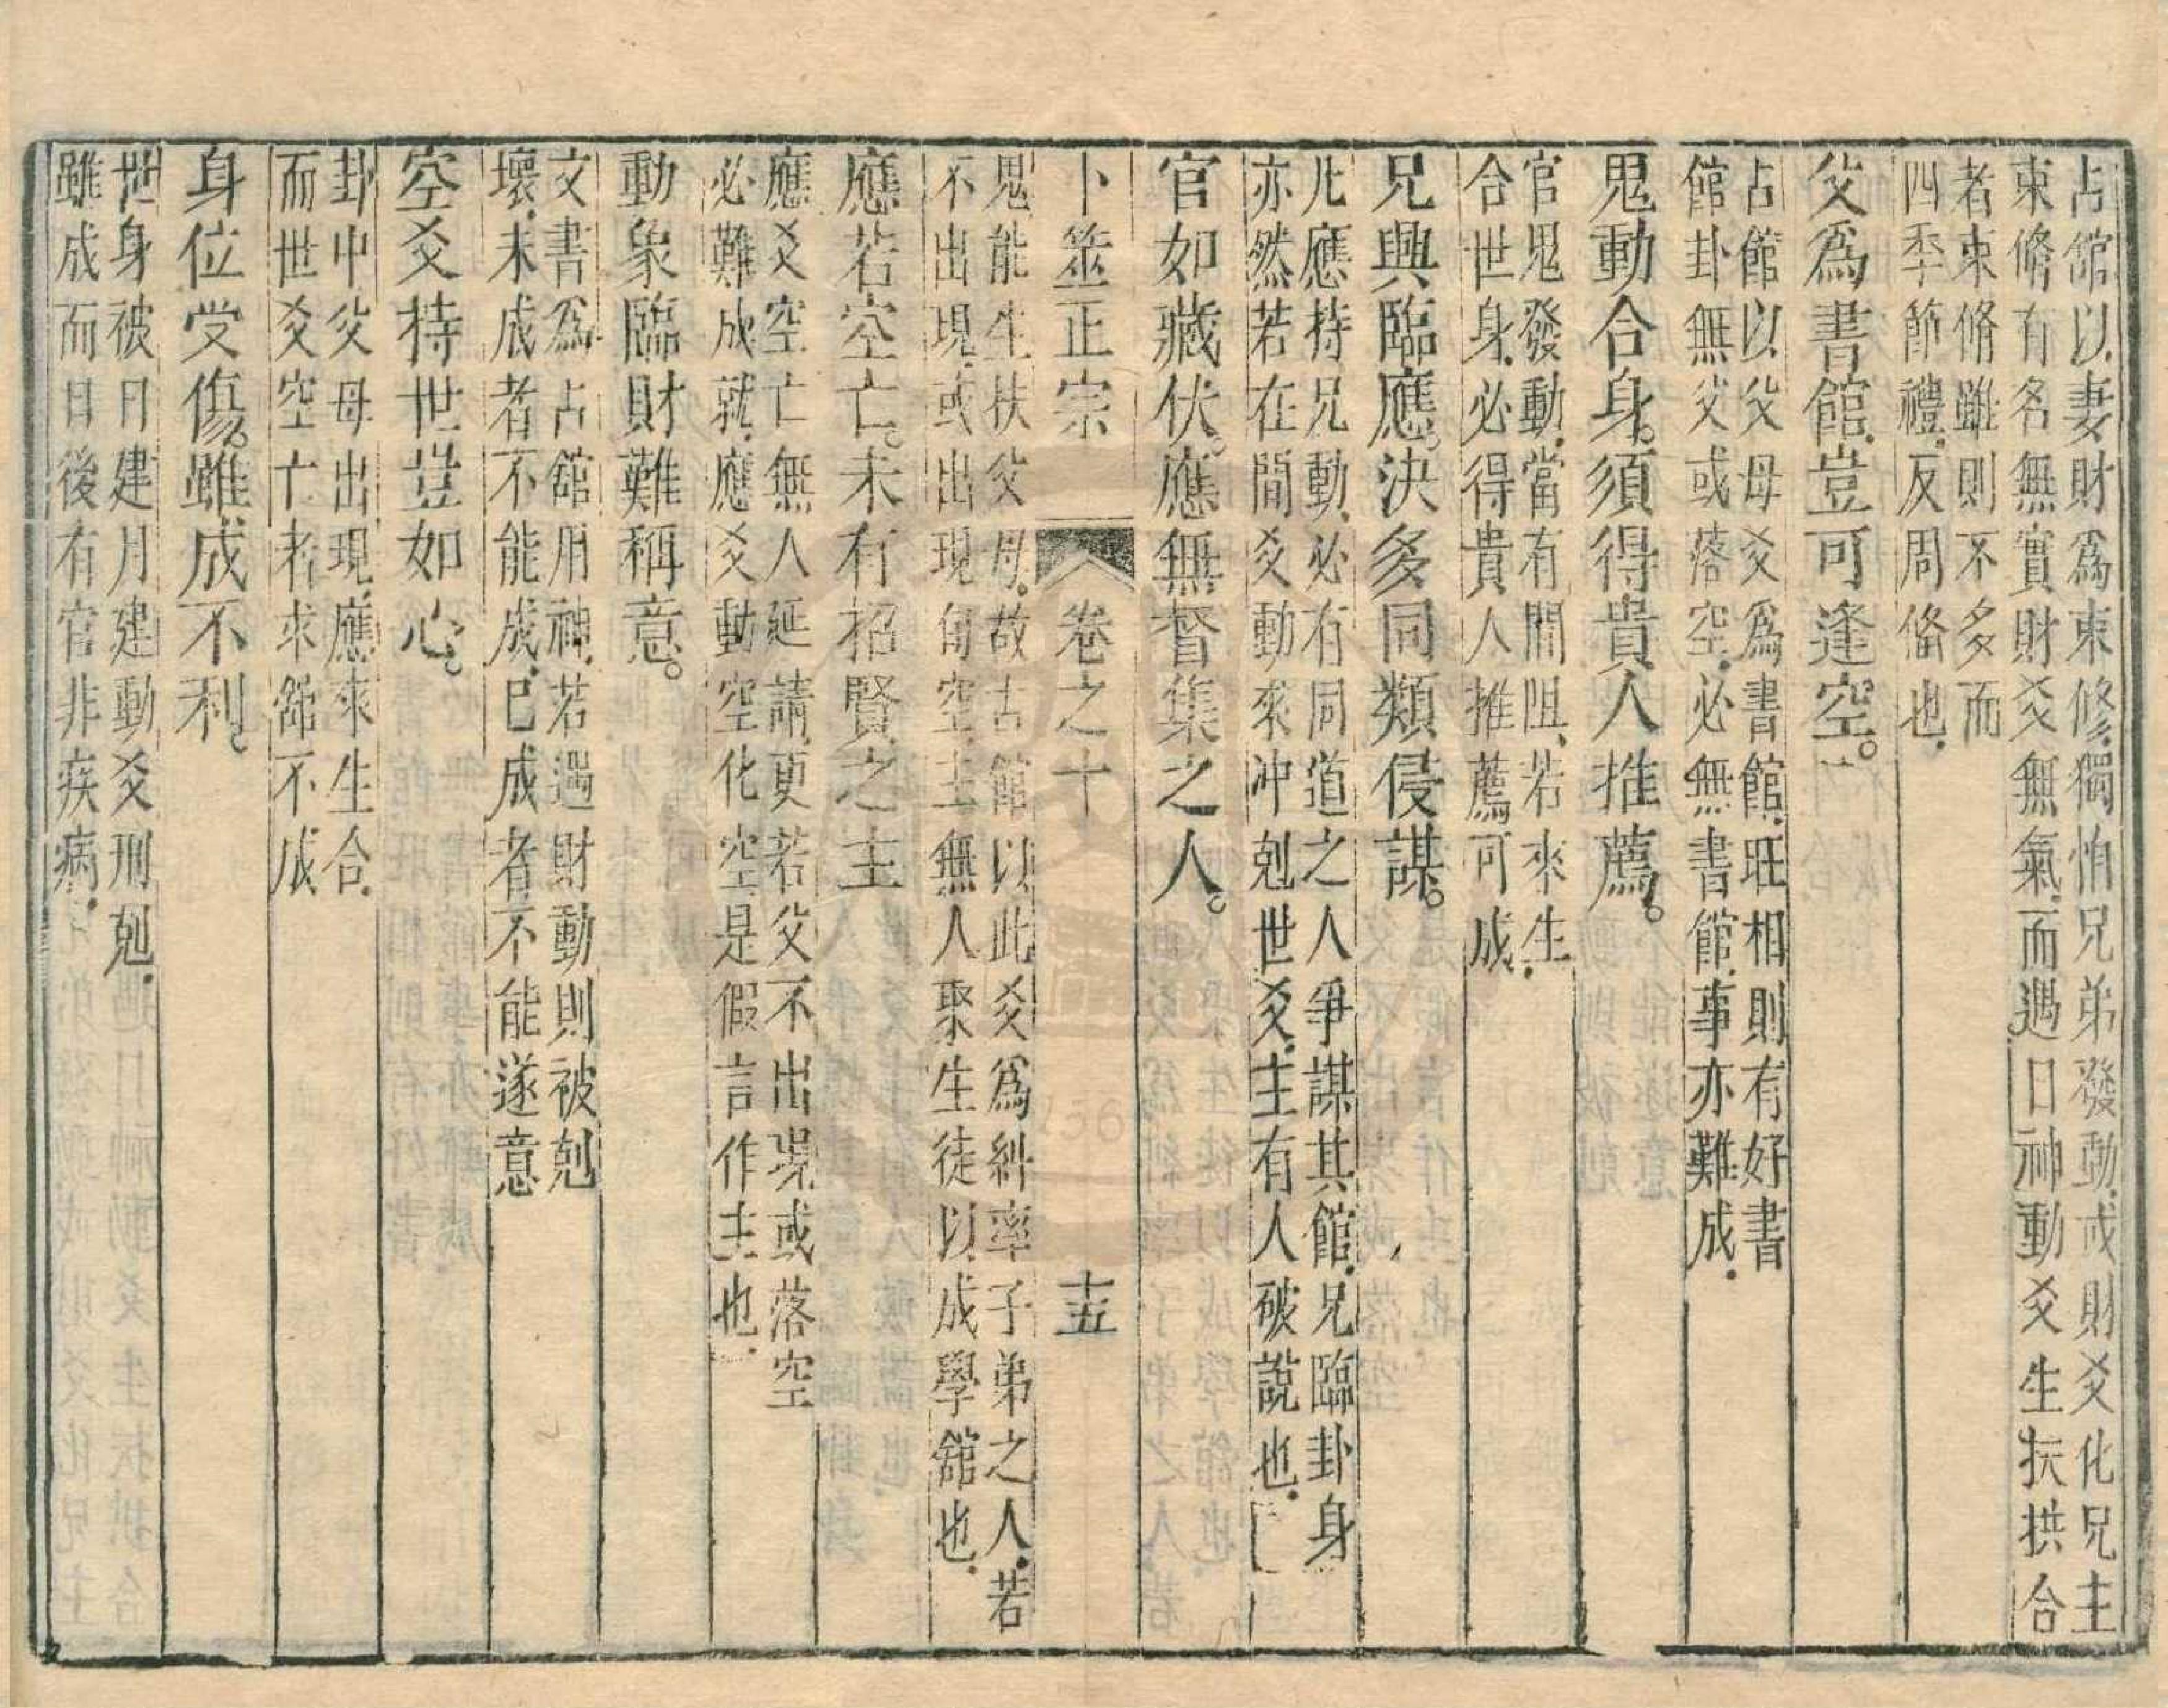 占舘以妻財爲束修獨怕兄弟發動或財爻化兄主
束脩有名無實財爻無氣而遇日神動爻生扶拱合
者束脩雖則不多而
四季節禮反周偹也
父爲書館豈可逢空。
占館以父母爻爲書館旺相則有好書
館卦無父或落空必無書館事亦難成
鬼動合身。須得貴人推薦。
官鬼發動當有間阻若來生
合世身必得貴人推薦可成
兄興臨應。決多同類侵謀。
凡應持兄動必有同道之人爭謀其館兄臨卦身
亦然若在間爻動來冲剋世爻主有人破說也
官如藏伏。應無督集之人。
卜筮正宗 卷之十 十五
鬼能生扶父母故占館以此爻爲糾率子弟之人若
不出現或出現旬空主無人聚生徒以成學舘也
應若空亡。未有招賢之主
應爻空亡無人延請更若父不出現或落空
必難成就應爻動空化空是假言作主也
動象臨財難稱意。
文書爲占舘用神若遇財動則被剋
壞未成者不能成已成者不能遂意
空爻持世豈如心。
卦中父母出現應來生合
而世爻空亡者求舘不成
身位受傷。雖成不利。
世身被日建月建動爻刑剋
雖成而日後有官非疾病